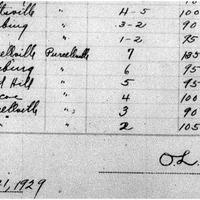 sville " 4-5 100
burg " 3-2 90
" 1-2 95
cellville Purcellville 7 185
sburg " 6 95
d Hill " 5 95
" 4 100
cellville " 3 90
" " 2 105
O.L.
1, 1929